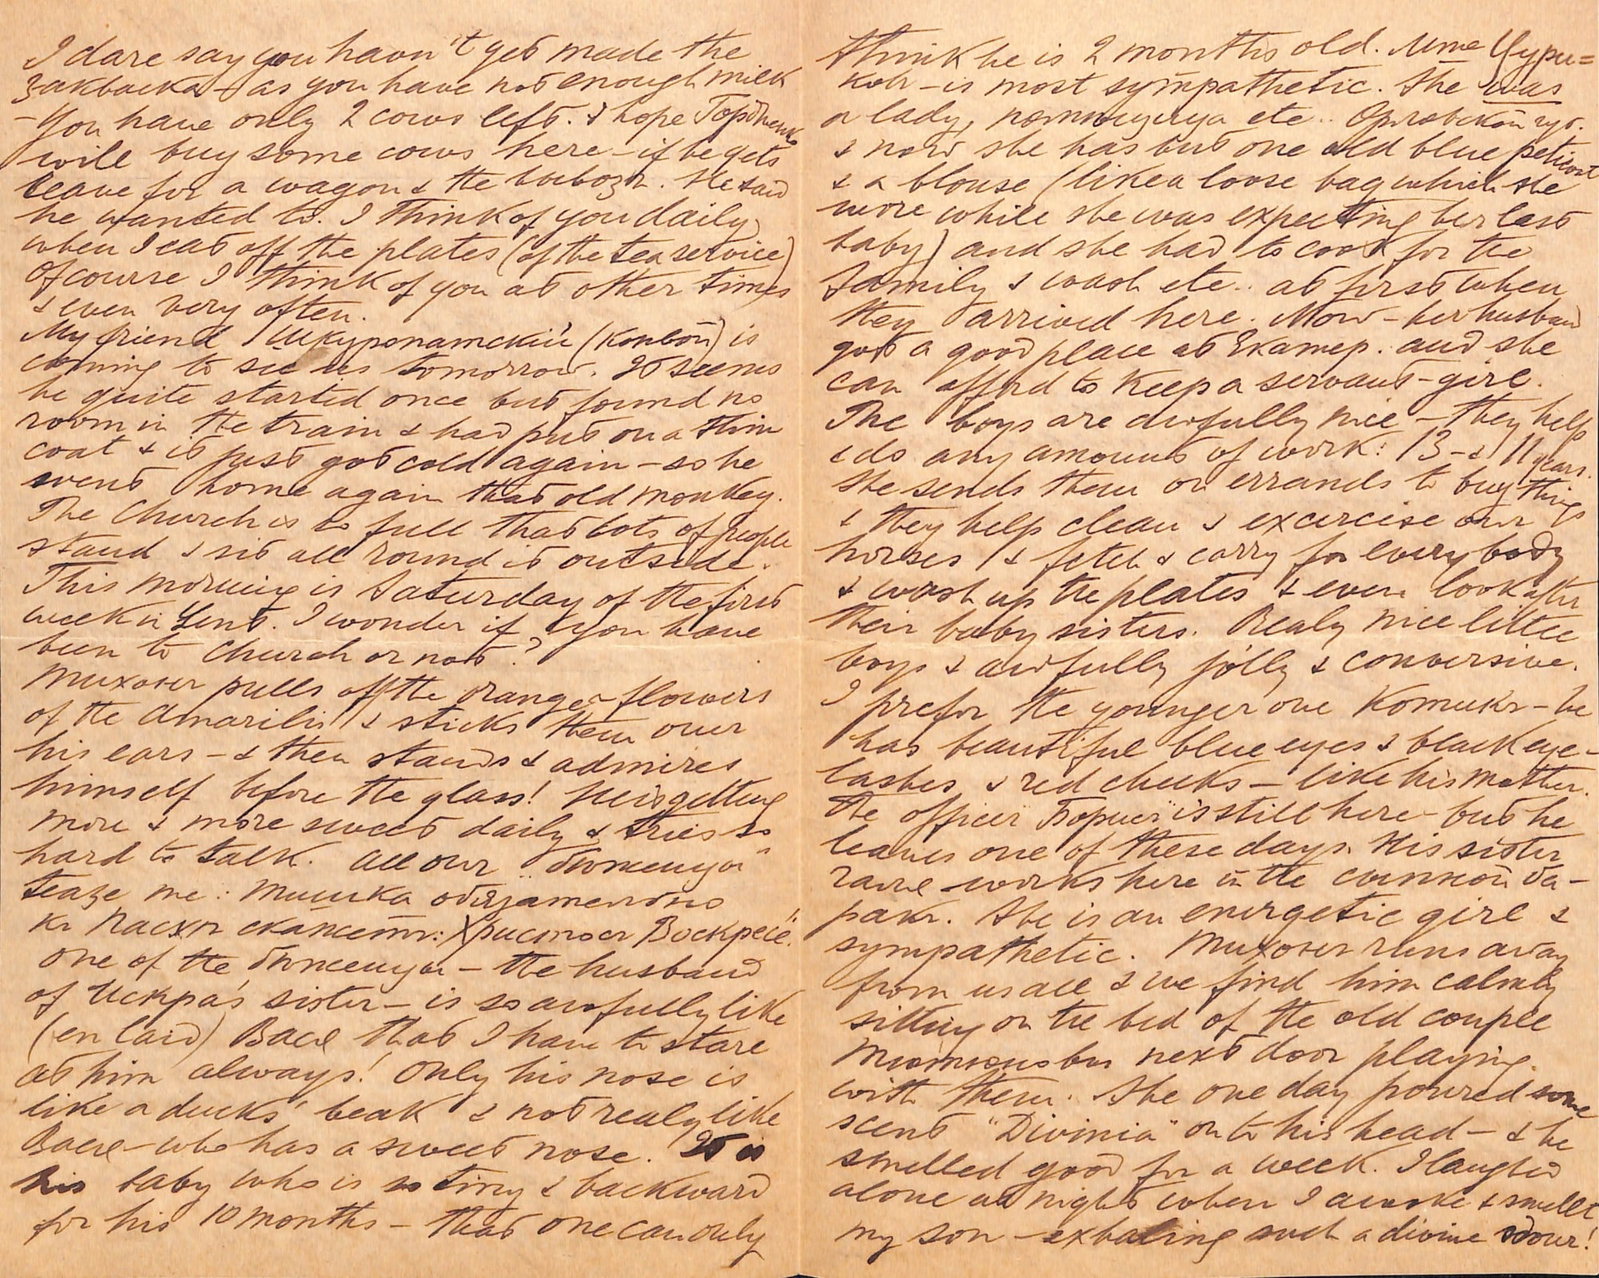 I dare say you havn't yet made the
закваска - as you have not enough milk
- You have only 2 cows left. I hope
will buy some cows here - if he gets
leave for a wagon & the вывозъ. He said
he wanted to. I think of you daily
when I eat off the plates (of the tea service)
Of course I think of you at other times
& even very often.
My friend (Конвой) is
coming to see us tomorrow. It seems
he quite started once but found no
room in the train & had put on a thin
coat & it just got cold again - so he
went home again that old monkey.
The Church is so full that lots of people
stand & sit all round it outside.
This morning is Saturday of the first
week in Lent. I wonder if you have
been to Church or not?
pulls off the orange flowers
of the Amarilis & sticks them over
his ears - & then stands & admires
himself before the glass! He is getting
more & more sweet daily & tries so
hard to talk. All our "бѣженцы"
teaze me: Мишка обязательно
къ Пасхѣ скажетъ: Христосъ Воскресе!"
One of the бѣженцы - the husband
of sister - is so awfully like
(en laid) that I have to stare
at him always! Only his nose is
like a ducks' beak & not realy like
- who has a sweet nose. It is
his baby who is so tiny & backward
for his 10 months - that one can only
think he is 2 months old. Mme
- is most sympathetic. She was
a lady, помѣщица etc..
& now she has but one old blue petticoat
& a blouse (like a loose bag which she
wore while she was expecting her last
baby) and she had to cook for the
family & wash etc.. at first when
they arrived here. Now - her husband
got a good place at Екатер. and she
can afford to keep a servant-girl.
The boys are awfully nice - they help
& do any amount of work: 13 - & 11 years.
She sends them on errands to buy things
& they help clean & excercise our
horses & fetch & carry for everybody
& wash up the plates & even look after
their baby sisters. Realy nice little
boys & awfully jolly & conversive.
I prefer the younger one - he
has beautiful blue eyes & black eye-
lashes & red cheeks - like his mother.
The officer is still here - but he
leaves one of these days. His sister
works here in the
She is an energetic girl &
sympathetic. runs away
from us all & we find him calmly
sitting on the bed of the old couple
next door playing
with them. She one day poured some
scent "Divinia" on to his head - & he
smelled good for a week. I laughed
alone at night when I awoke & smellt
my son - exhaling such a divine odour!